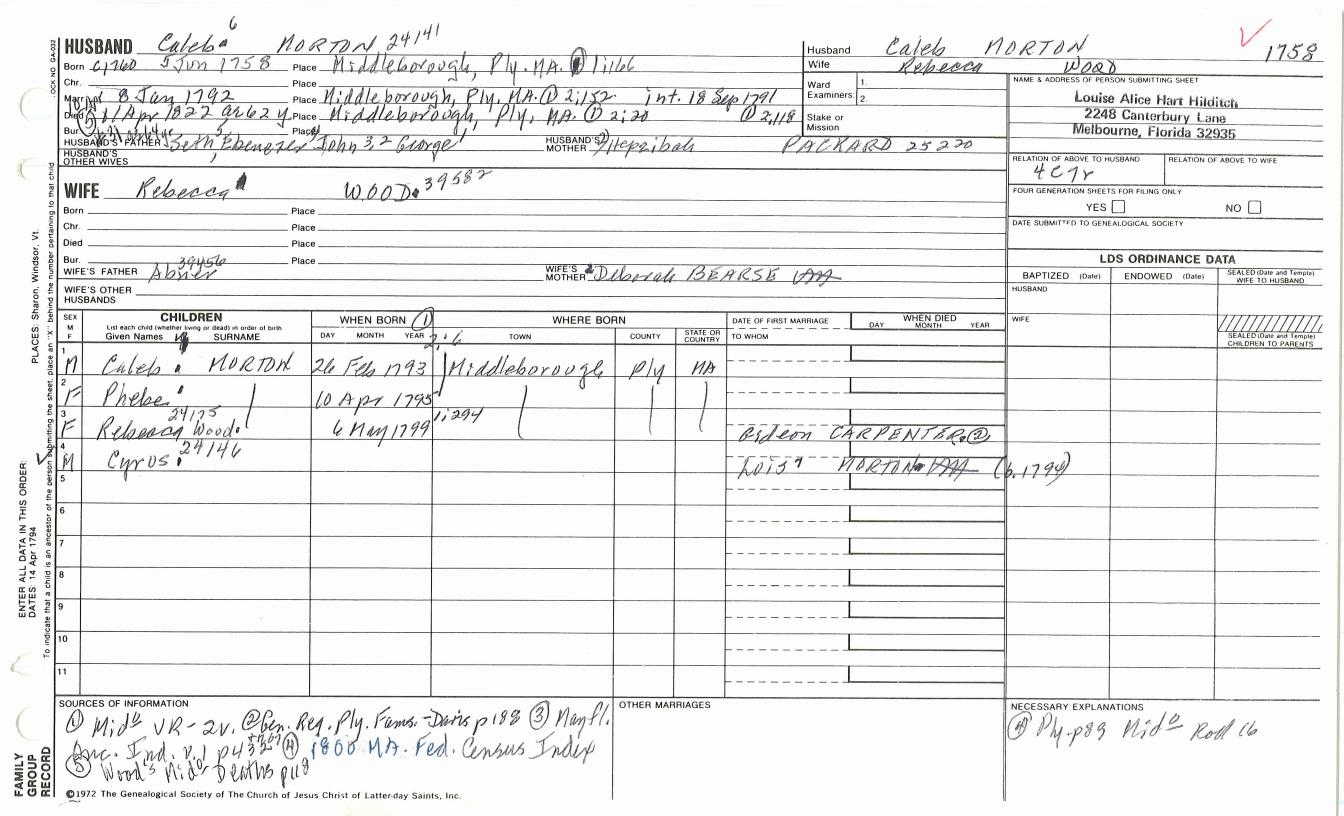 6
HUSBAND Caleb MORTON 24141
Born c1760 5 Jun 1758 Place Middleborough, Ply. MA. ① 1:166
Chr. Place
Marr. 8 Jan 1792 Place Middleborough, Ply, MA. ① 2:152 int. 18 Sep 1791
Died 11 Apr 1822 ae 62 y Place Middleborough, Ply, MA. ① 2:20 ① 2,118
Bur. Place
HUSBAND'S FATHER Seth Ebenezer John 3,2 George HUSBAND'S MOTHER Hepzibah PACKARD 25220
HUSBAND'S OTHER WIVES
Husband Caleb MORTON 1758
Wife Rebecca WOOD
Ward Examiners: 1. 2.
Stake or Mission
NAME & ADDRESS OF PERSON SUBMITTING SHEET
Louise Alice Hart Hilditch
2248 Canterbury Lane
Melbourne, Florida 32935
RELATION OF ABOVE TO HUSBAND RELATION OF ABOVE TO WIFE
4C7r
FOUR GENERATION SHEETS FOR FILING ONLY
YES NO
DATE SUBMITTED TO GENEALOGICAL SOCIETY
WIFE Rebecca WOOD 39582
Born Place
Chr. Place
Died Place
Bur. Place
39456
WIFE'S FATHER Abner WIFE'S MOTHER Deborah BEARSE
WIFE'S OTHER HUSBANDS
LDS ORDINANCE DATA
BAPTIZED (Date) ENDOWED (Date) SEALED (Date and Temple) WIFE TO HUSBAND
HUSBAND
WIFE
SEALED (Date and Temple) CHILDREN TO PARENTS
SEX M F
CHILDREN
List each child (whether living or dead) in order of birth
Given Names SURNAME
WHEN BORN ①
DAY MONTH YEAR
WHERE BORN
TOWN COUNTY STATE OR COUNTRY
DATE OF FIRST MARRIAGE
TO WHOM
WHEN DIED
DAY MONTH YEAR
2:6
1 M Caleb MORTON 26 Feb 1793 Middleborough Ply MA
2 F Phebe 10 Apr 1795
24175
3 F Rebecca Wood 6 May 1799 1:294 Gideon CARPENTER ②
24146
4 M Cyrus Lois 7 MORTON (b. 1794)
5
6
7
8
9
10
11
SOURCES OF INFORMATION
① Mid° VR - 2v. ② Gen. Reg. Ply. Fams. - Davis p188 ③ Mayfl.
Anc. Ind. v.1 p432 ④ 1800 MA. Fed. Census Index
⑤ Wood's Mid° Deaths p118
OTHER MARRIAGES
NECESSARY EXPLANATIONS
④ Ply-p89 Mid° Rod 16
©1972 The Genealogical Society of The Church of Jesus Christ of Latter-day Saints, Inc.
FAMILY GROUP RECORD
ENTER ALL DATA IN THIS ORDER:
DATES: 14 Apr 1794
PLACES: Sharon, Windsor, Vt.
To indicate that a child is an ancestor of the person submitting the sheet, place an "X" behind the number pertaining to that child